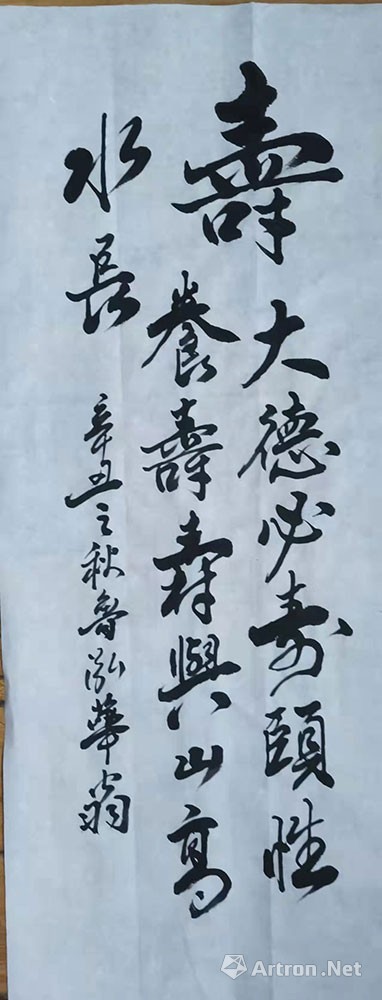 壽
大德必寿頤性
養壽壽與山高
水長
辛丑之秋魯泓華翁
Artron.Net